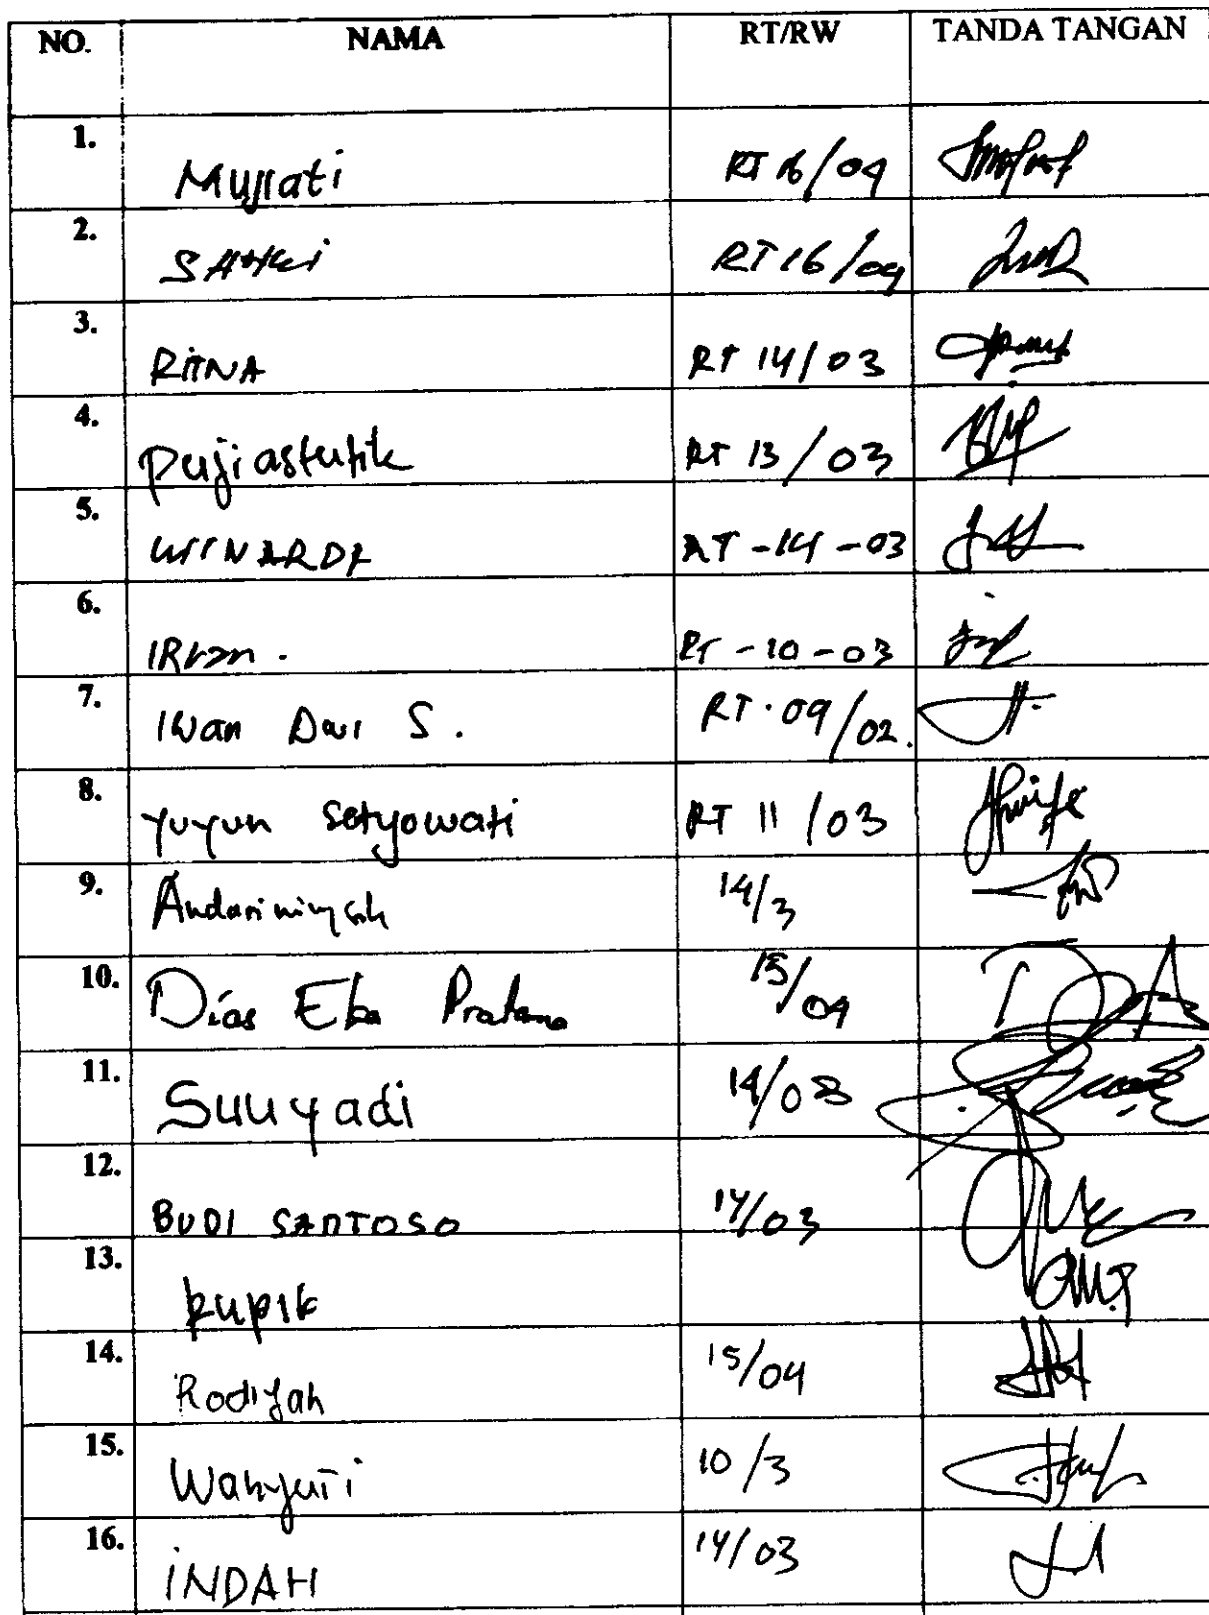 NO. NAMA RT/RW TANDA TANGAN
1. Mujiati RT 16/04
2. RT 16/04
3. RITNA RT 14/03
4. Pujiastutik RT 13/03
5. WINARDI RT-14-03
6. RT-10-03
7. Iwan Dwi S. RT.09/02.
8. Yuyun Setyowati RT 11/03
9. Andariningsih 14/3
10. Dias Eka Pratama 15/04
11. Suuyadi 14/03
12. BUDI SANTOSO 14/03
13. kupik
14. Rodiyah 15/04
15. Wahyuti 10/3
16. INDAH 14/03